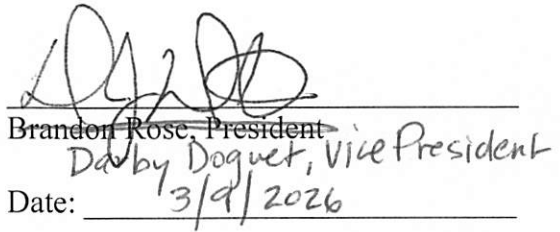 Brandon Rose, President
Darby Doguet, Vice President
Date: 3/9/2026